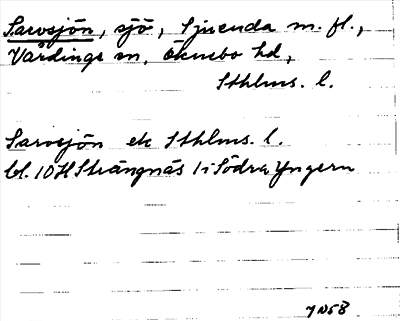 Sarvsjön, sjö, Sjuenda m. fl.,
Vårdinge sn, Öknebo hd,
Sthlms. l.
Sarvsjön ek Sthlms. l.
bl. 10H Strängnäs 1i Södra Yngern